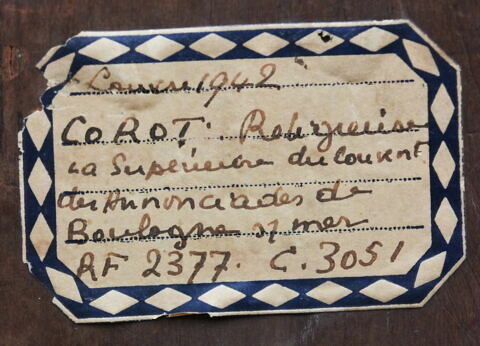 Louvre 1942
COROT. Religieuse
La Supérieure du Couvent
des Annonciades de
Boulogne s/ mer
RF 2377. C. 3051